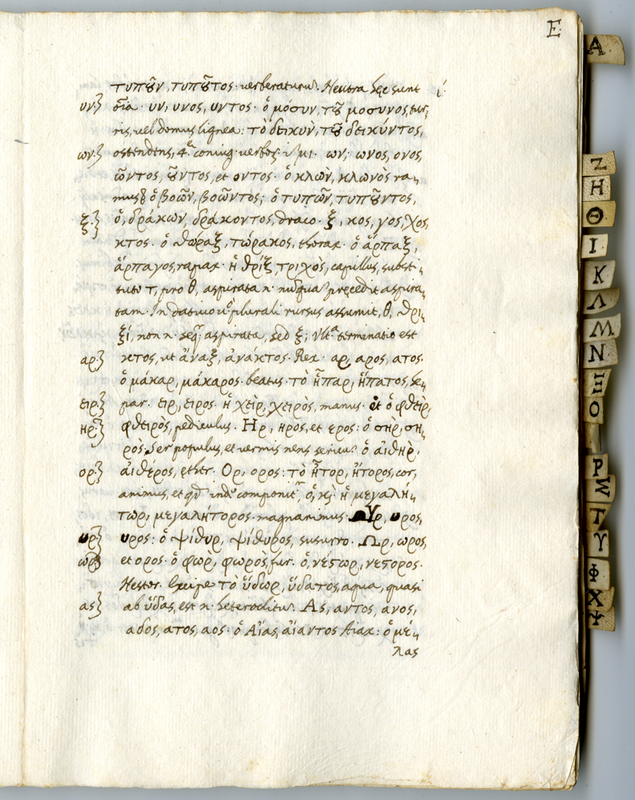 E
τυποῦν, τυποῦντος· verberaturum. Neutra hęc sunt
υν. οῖα υν, υνος, υντος· ὁ μόσυν, τοῦ μοσυνος, tur-
ris, vel domus lignea· τὸ δεικνύν, τοῦ δεικνύντος,
ων. ostendens, 4ę coniug· μι· ων; ωνος, ονος,
ῶντος, οῦντος, et οντος· ὁ κλὼν, κλωνὸς ra-
mus ὁ βοῶν, βοῶντος; ὁ τυπῶν, τυποῦντος,
ξ. ὁ, δράκων, δράκοντος, draco· ξ, κος, γος, χος
κτος· ὁ θώραξ, τώρακος, thorax· ὁ ἅρπαξ,
ἅρπαγος, rapax· ἡ θρίξ, τριχὸς, capillus, substi-
tuto τ, pro θ, aspirata n. nunquam precedit aspira-
tam. In dativo plurali rursus assumit, θ, θρι-
ξί, non n. seq. aspirata, sed ξ; terminatio est
αρ. κτος, ut ἄναξ, ἄνακτος· Rex· αρ, αρος, ατος·
ὁ μάκαρ, μάκαρος· beatus· τὸ ἧπαρ, ἥπατος, he-
ειρ. par· ειρ, ειρος· ἡ χεὶρ, χειρὸς, manus· et ὁ φθεὶρ,
ηρ. φθειρὸς, pediculus· Ηρ, ηρος, et ερος· ὁ σὴρ, ση-
ρος, Ser populus, et vermis nens sericum· ὁ αἰθὴρ,
ορ. αἰθερος, ęther· Ορ, ορος· τὸ ἦτορ, ἤτορος, cor,
animus, et componit, ὁ, κ, ἡ μεγαλή-
τωρ, μεγαλήτορος· magnanimus· Υρ, υρος,
υρ. υρος· ὁ ψίθυρ, ψίθυρος, susurro· Ωρ, ωρος,
ωρ. et ορος· ὁ φὼρ, φωρὸς, fur· ὁ, νέστωρ, νέστορος·
Nestor· Excipe τὸ ὕδωρ, ὕδατος, aqua, quasi
ας. ab ὕδας, est n. heteroclitum· Ας, αντος, ανος,
αδος, ατος, αος· ὁ Αἴας, αἴαντος Aiax· ὁ μέ-
λας
Α
Ζ
Η
Θ
Ι
Κ
Λ
Μ
Ν
Ξ
Ο
Ρ
Σ
Τ
Υ
Φ
Χ
Ψ